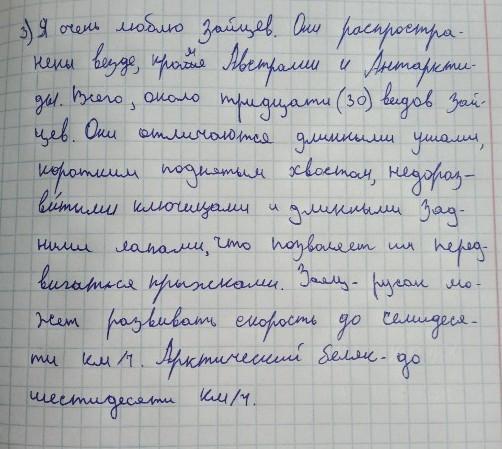 3) Я очень люблю Зайцев. Они распростра-
нены везде, кроме Австралии и Антаркти-
ды. Всего, около тридцати (30) видов Зай-
цев. Они отличаются длинными ушами,
коротким поднятым хвостом, недораз-
витыми ключицами и длинными Зад-
ними лапами, что позволяет им перед-
вигаться прыжками. Заяц-русак мо-
жет развивать скорость до семидеся-
ти км/ч. Арктический беляк - до
шестидесяти км/ч.